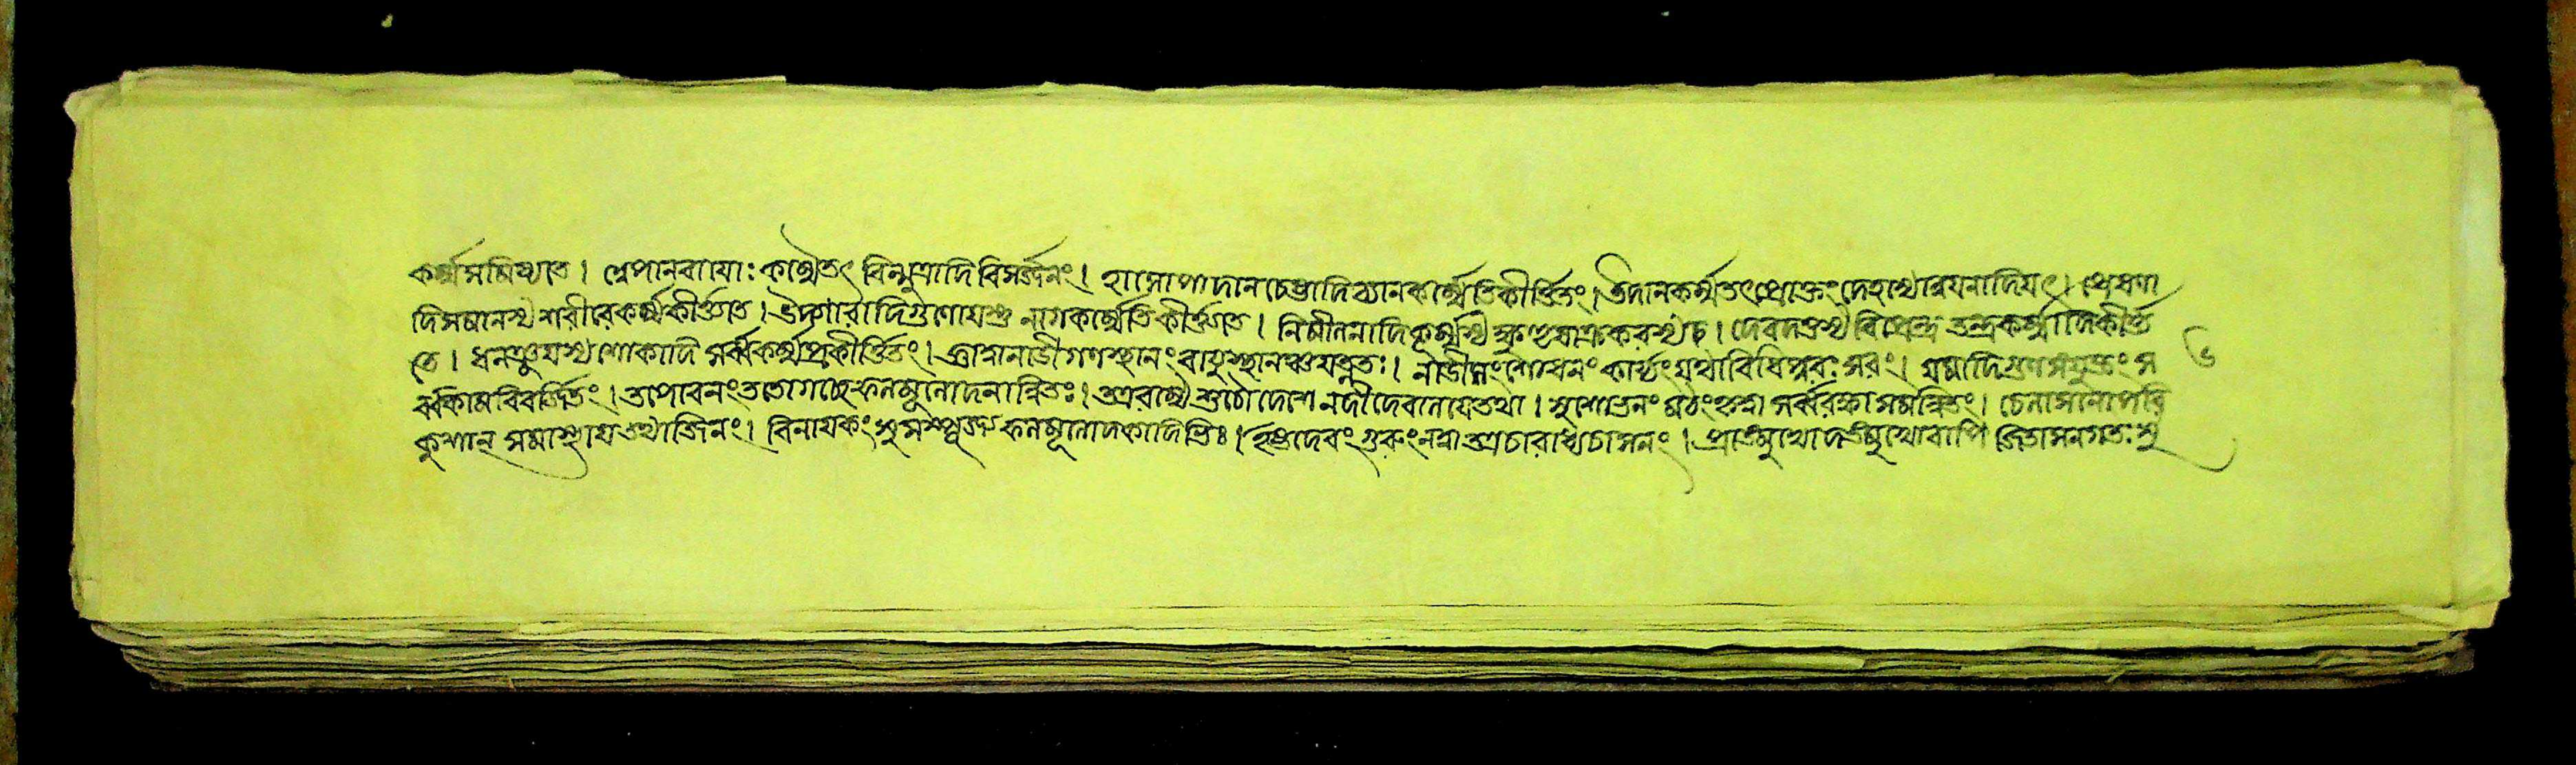 কর্ম্মসমিষ্যতে। অপানবায়োঃ কর্ম্মৈতৎ বিন্মুত্রাদি বিসর্জ্জনং। হানোপাদানচেষ্টাদি ব্যানকর্ম্মেতি কীর্ত্তিতং। উদানকর্ম্মতৎপ্রোক্তং দেহস্যোন্নয়নাদিযৎ। পোষণা
দি সমানস্য শরীরে কর্ম্ম কীর্ত্ত্যতে। উদ্গারাদি গুণোযস্তু নাগকর্ম্মেতি কীর্ত্ত্যতে। নিমীলনাদি কূর্ম্মস্য ক্ষুৎ কৃকরস্য চ। দেবদত্তস্য বিপ্রেন্দ্র তন্দ্রাকর্ম্মেতি কীর্ত্ত্য
তে। ধনঞ্জয়স্য শোকাদি সর্ব্বকর্ম্ম প্রকীর্ত্তিতং। জ্ঞাত্বানাডীগণস্থানং বায়ুস্থানঞ্চ যত্নতঃ। নাডীসংশোধনং কার্য্যং যথাবিধিপুরঃসরং। যমাদিগুণসংযুক্তং স
র্ব্বকামবিবর্জ্জিতং। তপোবনং ততো গচ্ছেৎ ফলমূলোদকান্বিতঃ। তত্র রম্যে শুচৌ দেশে নদী দেবালয়ে তথা। সুশোভনং মঠং কৃত্বা সর্ব্বরক্ষাসমন্বিতং।
কুশান্ সমাস্থায় তথাজিনং। বিনায়কং সুসম্পূজ্য ফলমূলোদকাদিভিঃ। ইষ্টদেবং গুরুং নত্বা চাসনং। প্রাঙ্মুখোদঙ্মুখোবাপি জিতাসনগতঃ সু
৬